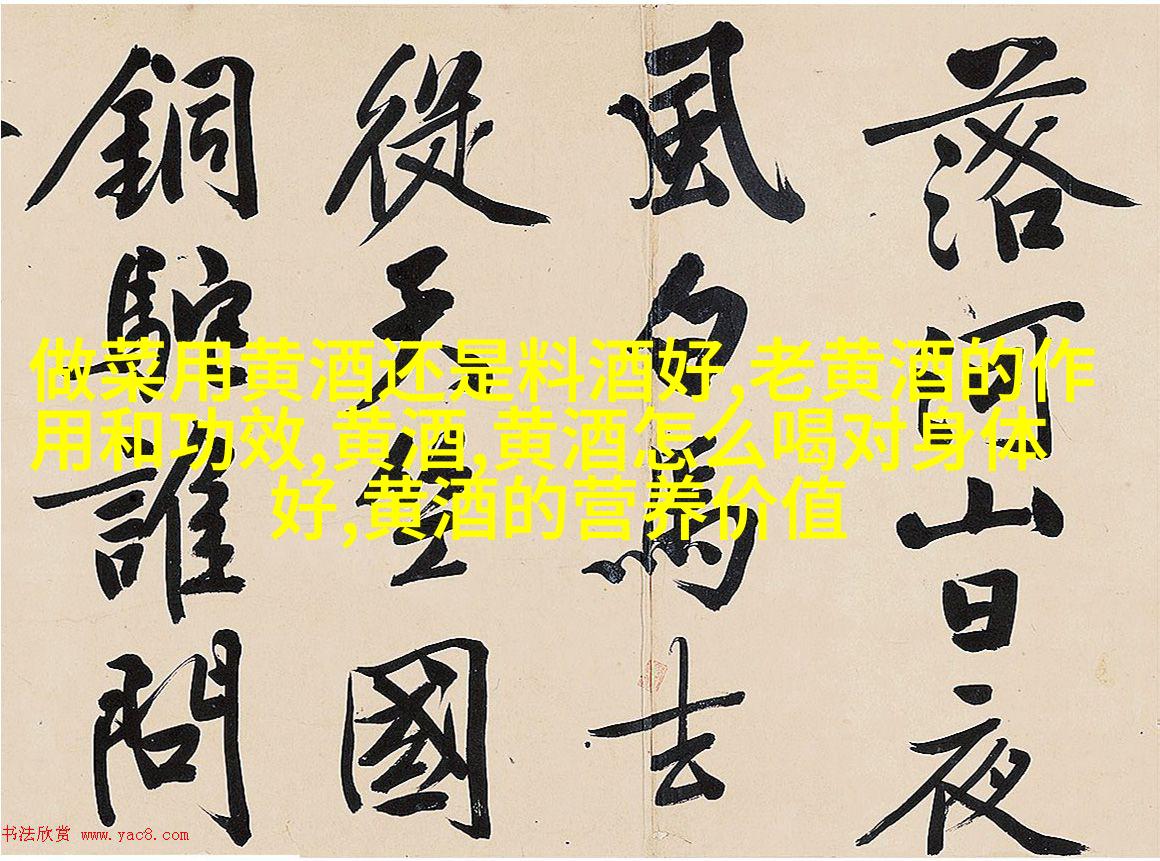 落河山日夜
風白馬去
從天竺國
銅駝誰問
做菜用黄酒还是料酒好,老黄酒的作
用和功效,黄酒,黄酒怎么喝对身体
好,黄酒的营养价值
书法欣赏 www.yac8.com